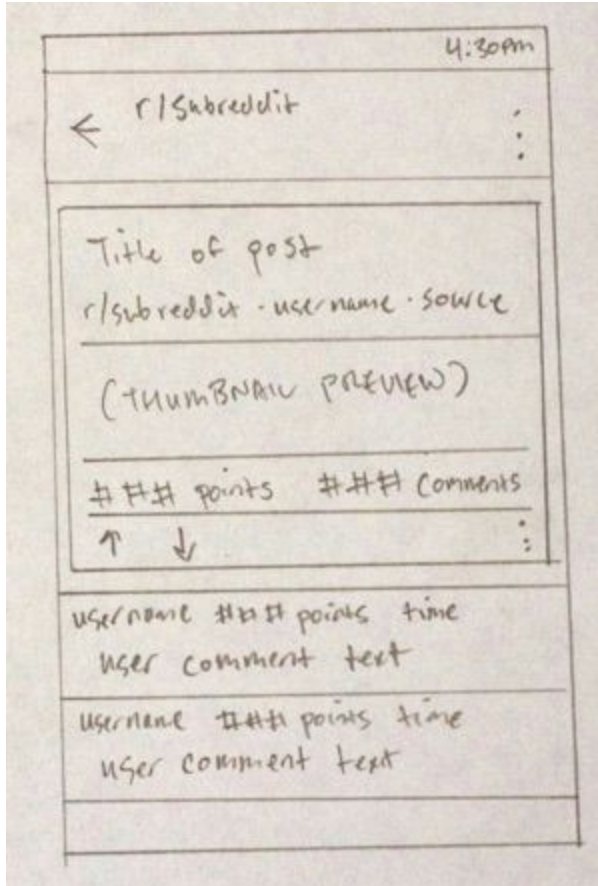 4:30pm
← r/subreddit ⋮
Title of post
r/subreddit · username · source
(THUMBNAIL PREVIEW)
### points ### comments
↑ ↓ ⋮
username ### points time
user comment text
username ### points time
user comment text